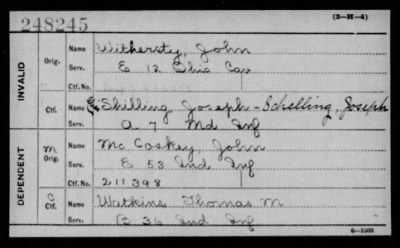 248245
(3-H-4)
INVALID
Orig.
Name Withersty, John
Serv. E 12 Ohio Cav
Ctf.No.
Ctf.
Name Shilling Joseph - Schelling, Joseph
Serv. A 7 Md Inf
DEPENDENT
m Orig.
Name Mc Coskey, John
Serv. E 53 Ind Inf
Ctf.No. 211398
C Ctf.
Name Watkins Thomas M
Serv. B 36 Ind Inf